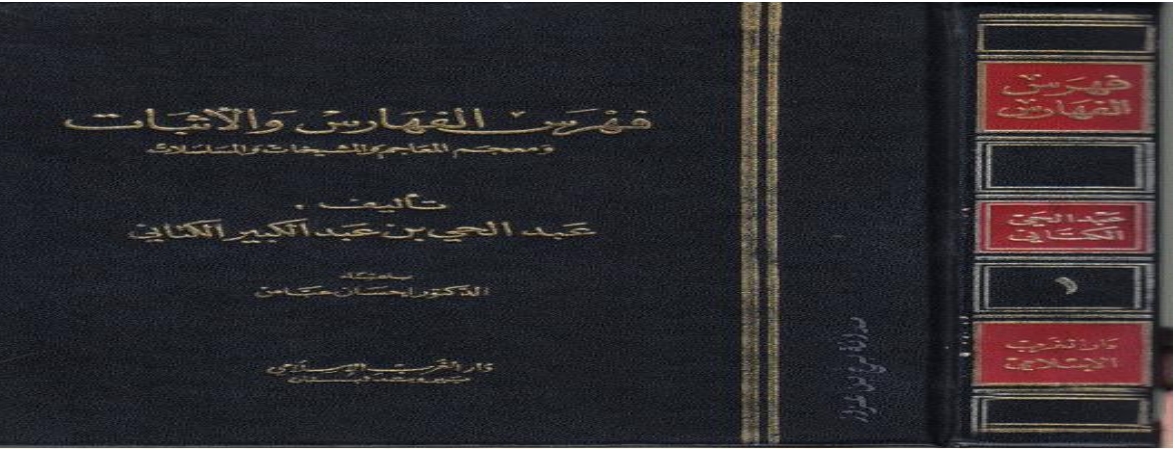 فهرس الفهارس والأثبات
ومعجم المعاجم والمشيخات والمسلسلات
تأليف
عبد الحي بن عبد الكبير الكتاني
باعتناء
الدكتور إحسان عباس
دار الغرب الإسلامي
بيروت لبنان
فهرس
الفهارس
عبد الحي
الكتاني
١
دار الغرب
الإسلامي